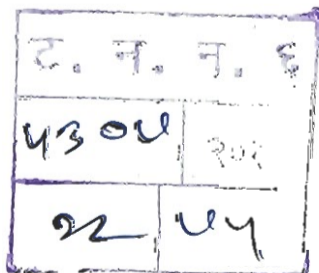 ट. न. न. ६
५३०५
२२ ५५